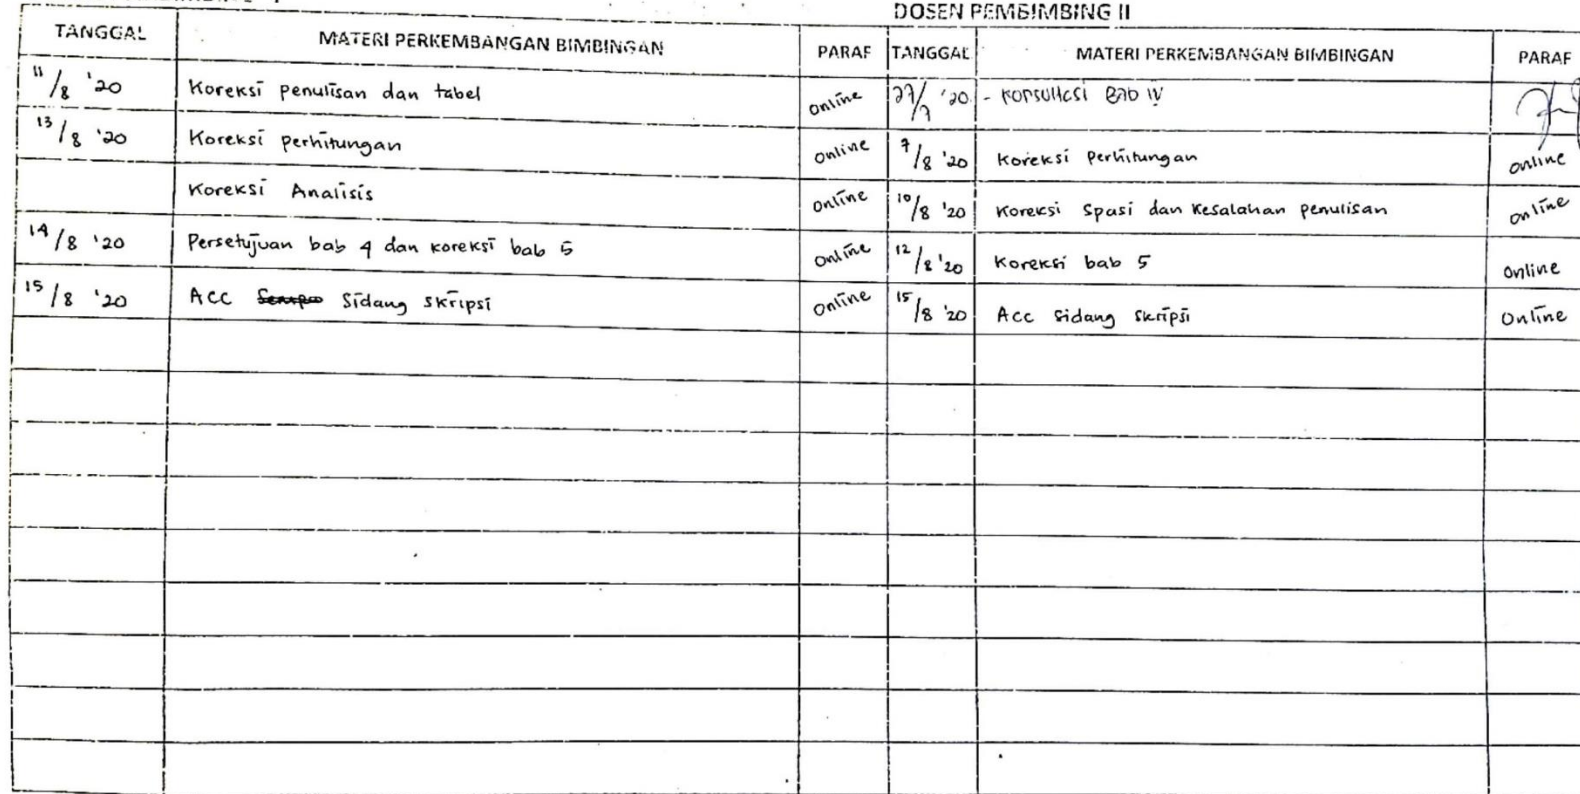 DOSEN PEMBIMBING II
TANGGAL MATERI PERKEMBANGAN BIMBINGAN PARAF TANGGAL MATERI PERKEMBANGAN BIMBINGAN PARAF
11/8 '20 Koreksi penulisan dan tabel online 27/7 '20 - Konsultasi Bab IV
13/8 '20 Koreksi perhitungan online 7/8 '20 Koreksi Perhitungan online
Koreksi Analisis online 10/8 '20 Koreksi Spasi dan Kesalahan penulisan online
14/8 '20 Persetujuan bab 4 dan koreksi bab 5 online 12/8 '20 Koreksi bab 5 online
15/8 '20 Acc Sidang skripsi online 15/8 '20 Acc Sidang skripsi online